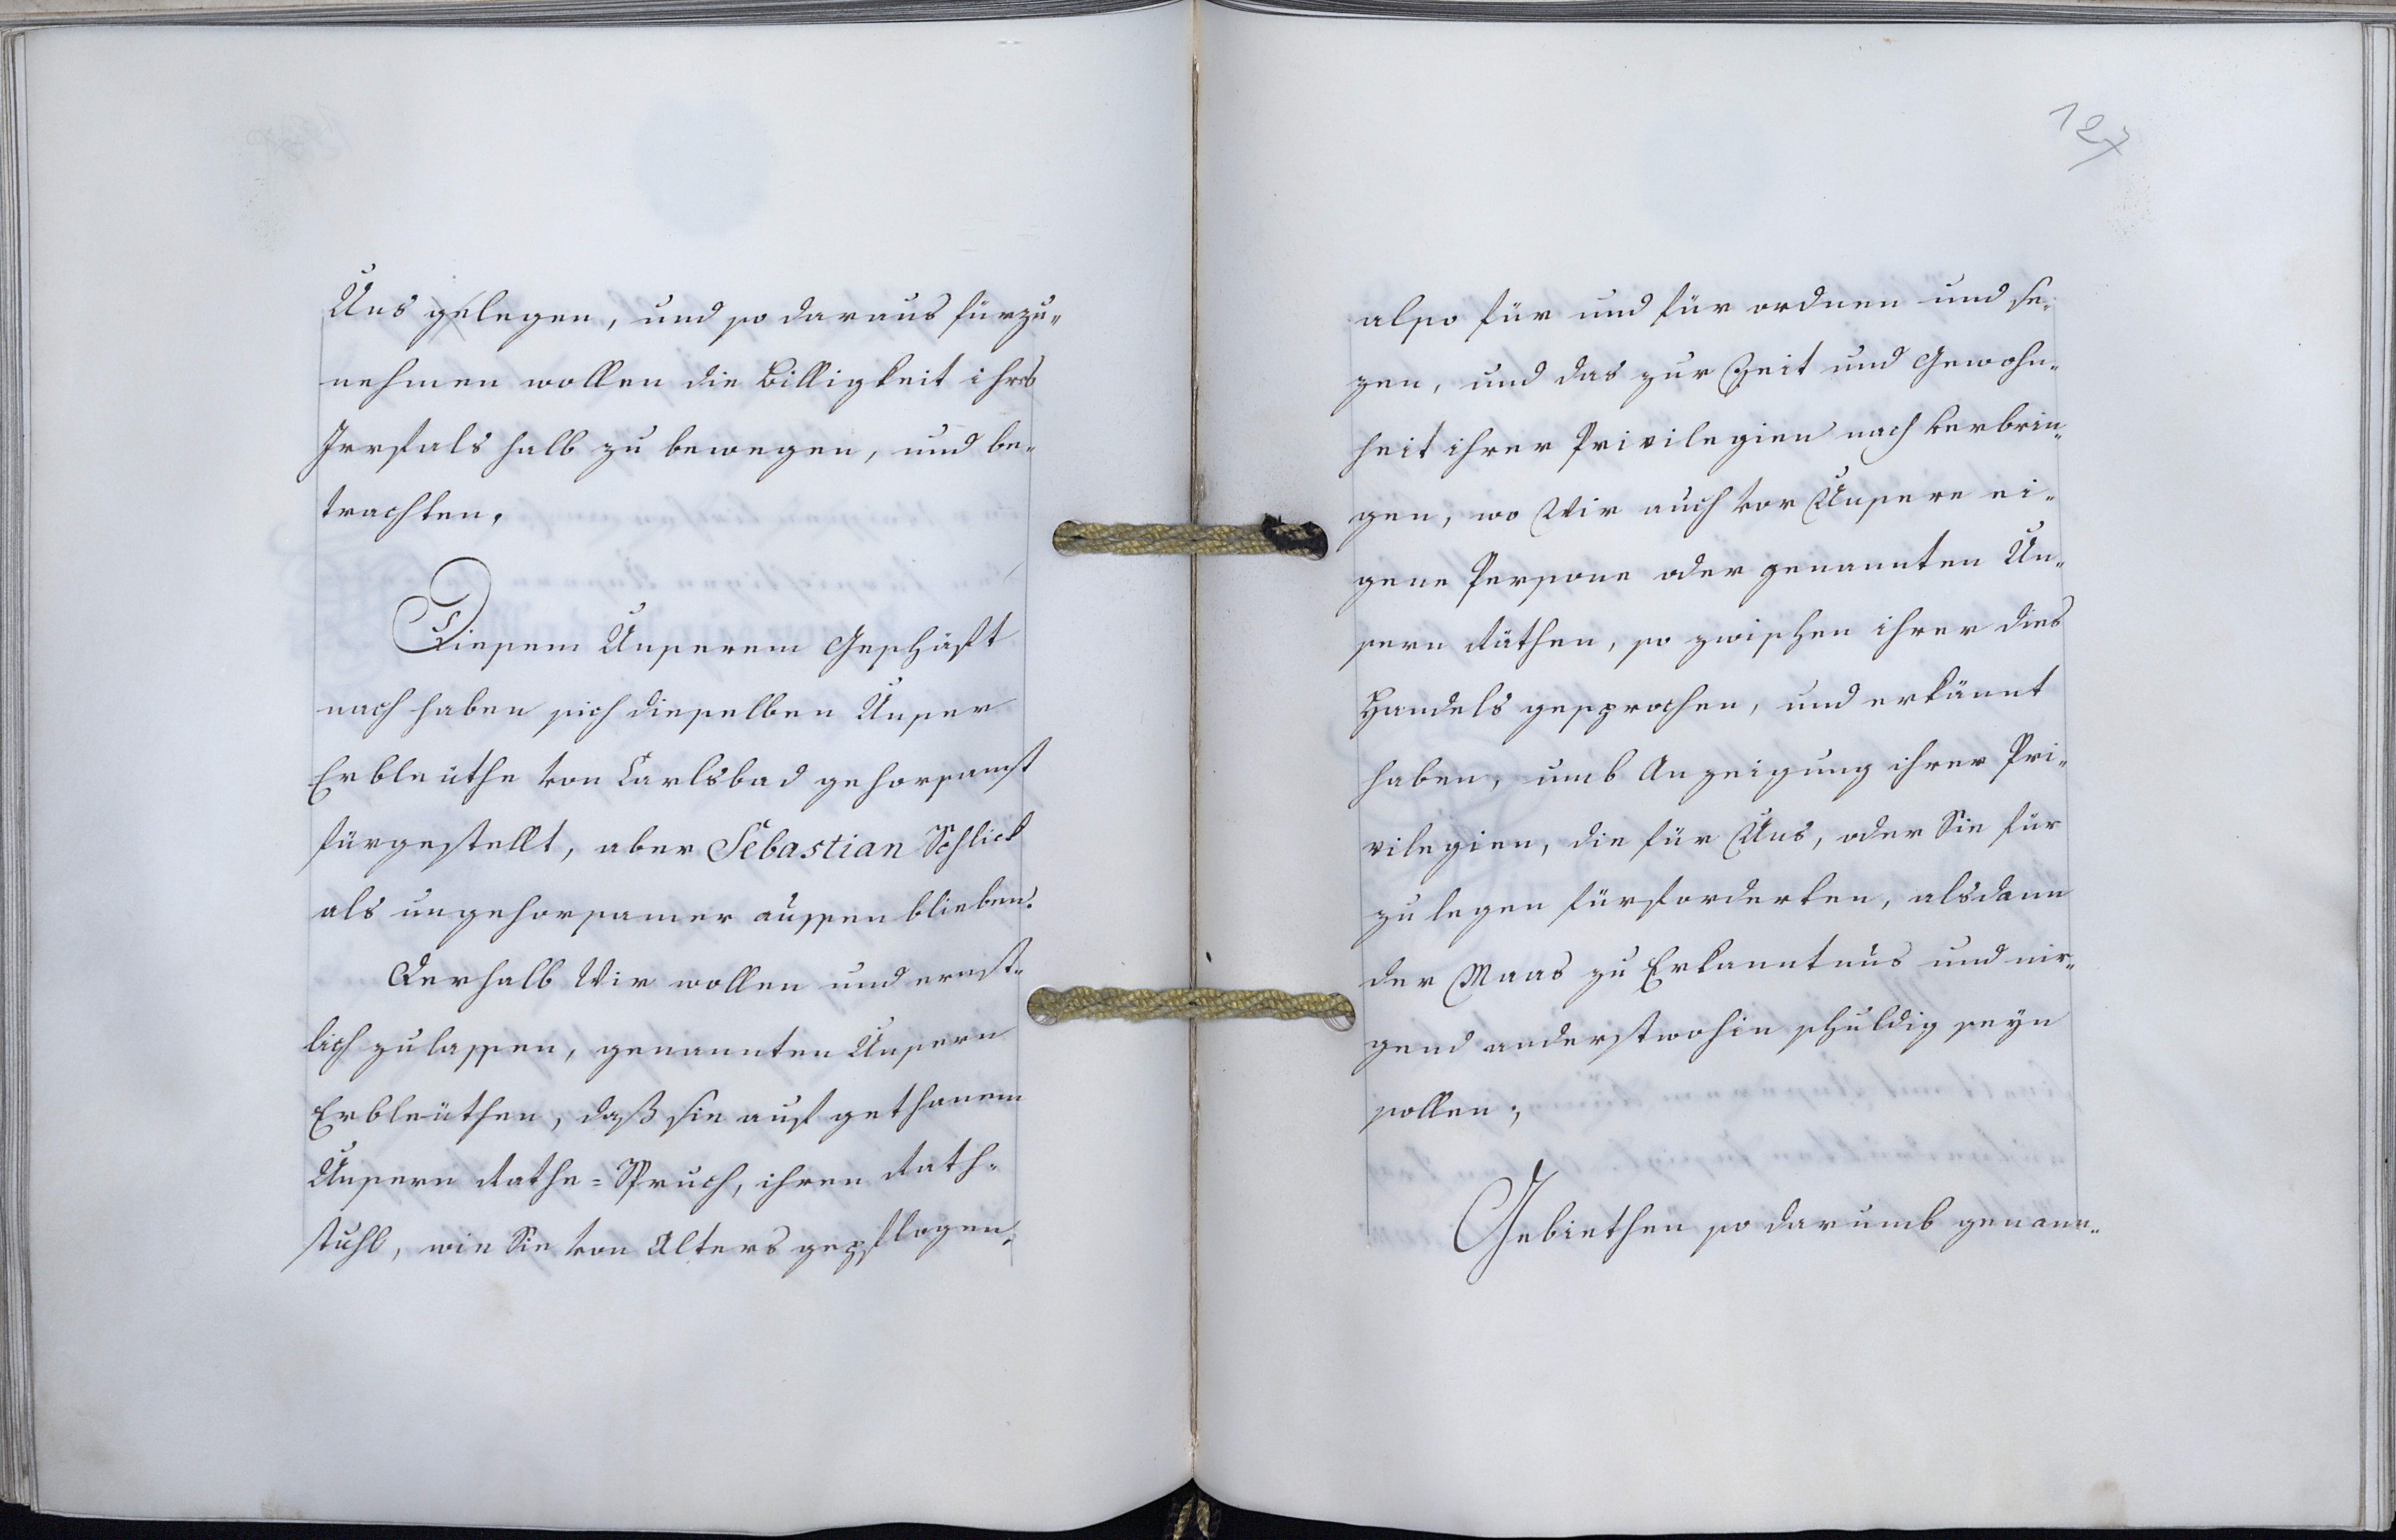 Uns gelegen, und so daraus fürzu-
nehmen wollen die Billigkeit ihrs
Irrsals halb zu bewegen, und be-
trachten.
Diesem Unserem Geschäft
nach haben sich dieselben Unser
Erbleuthe von Carlsbad gehorsamst
fürgestellt, aber Sebastian Schlick
als ungehorsamer aussen blieben.
Derhalb Wir wollen und ernst-
lich zulassen, genannten Unsern
Erbleüthen, daß sie auf gethanem
Unsern Rathe-Spruch, ihren Rath-
stuhl, wie Sie von Alters gepflogen,
127
also für und für ordnen und se-
zen, und das zur Zeit und Gewohn-
heit ihrer Privilegien nach verbrin-
gen, wo Wir auch vor Unsere ei-
gene Persone oder genannten Un-
sern Räthen, so zwischen ihrer dies
Handels gesprochen, und erkännt
haben, umb Anzeigung ihrer Pri-
vilegien, die für Uns, oder Sie für
zu legen fürforderten, alsdann
der Maas zu Erkanntnus und nir-
gend anderstwohin schuldig seyn
sollen;
Gebiethen so darumb genann-